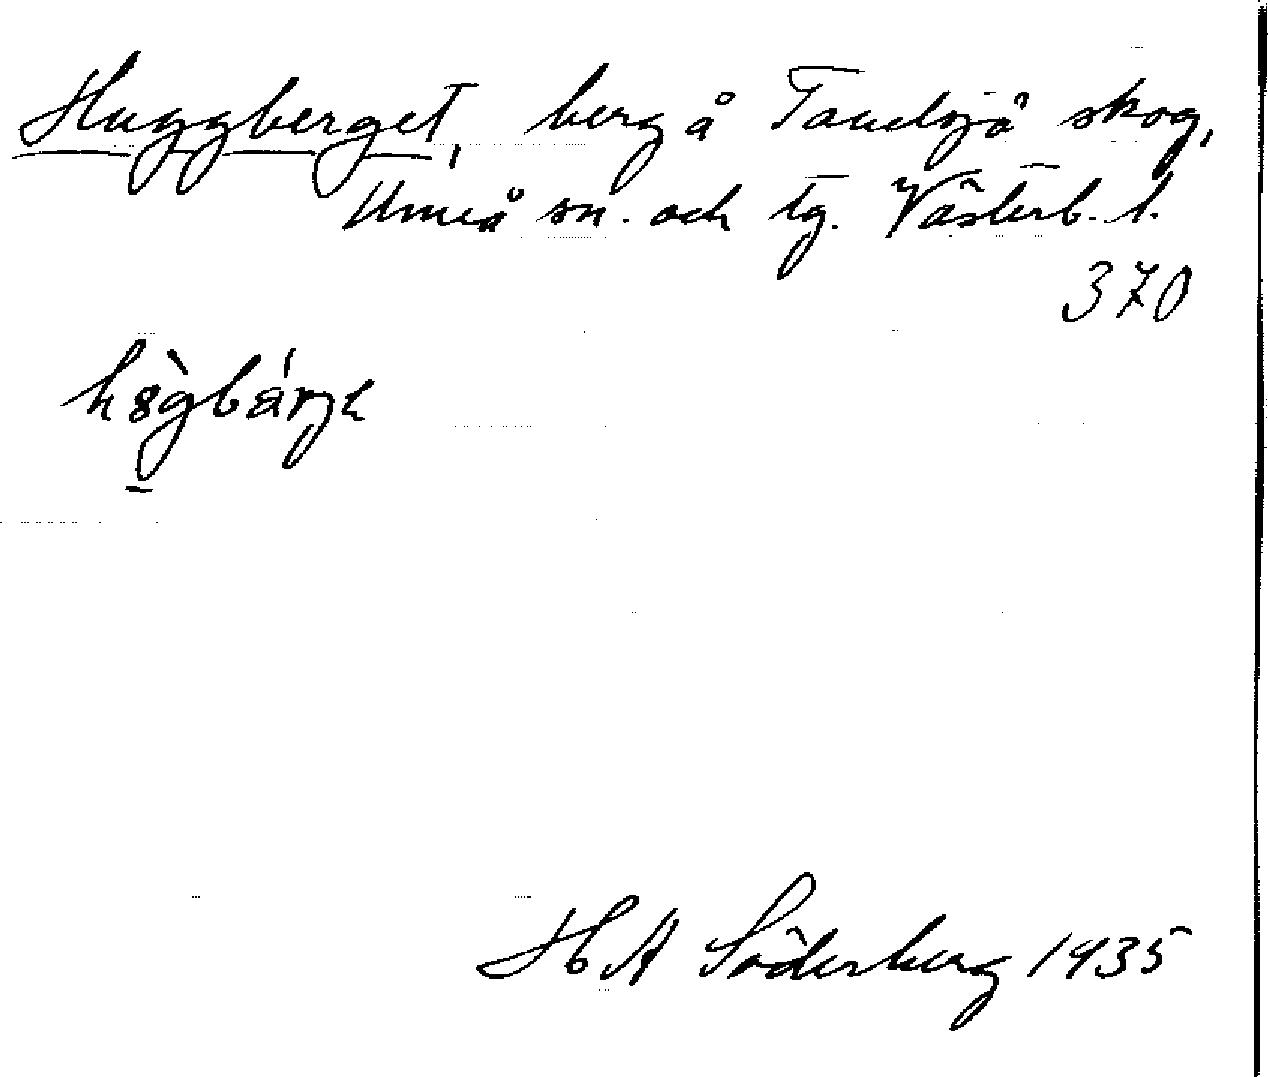 Huggberget, berg å Tavelsjö skog,
Umeå sn. och tg. Västerb. l.
370
H A Söderberg 1935